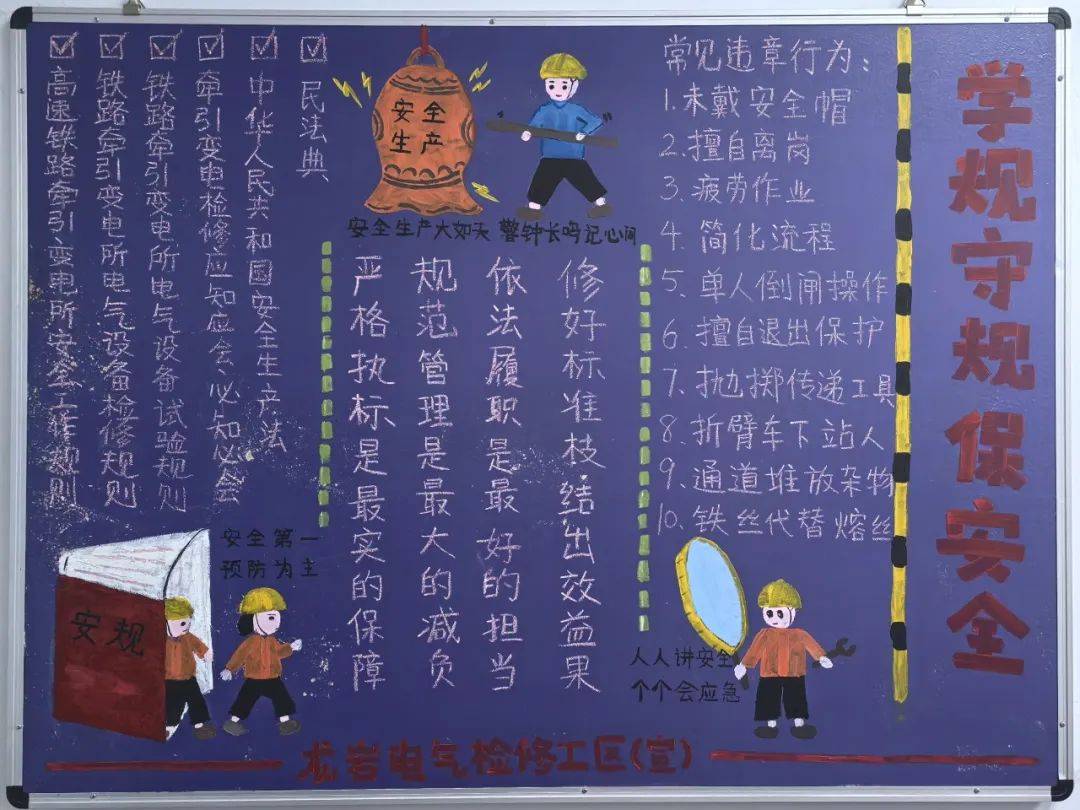 学规守规保安全
常见违章行为：
1.未戴安全帽
2.擅自离岗
3.疲劳作业
4.简化流程
5.单人倒闸操作
6.擅自退出保护
7.抛掷传递工具
8.折臂车下站人
9.通道堆放杂物
10.铁丝代替熔丝
人人讲安全
个个会应急
安全
生产
安全生产大如天 警钟长鸣记心间
修好标准枝 结出效益果
依法履职是最好的担当
规范管理是最大的减负
严格执标是最实的保障
☑民法典
☑中华人民共和国安全生产法
☑牵引变电检修应知应会、必知必会
☑铁路牵引变电所电气设备试验规则
☑铁路牵引变电所电气设备检修规则
☑高速铁路牵引变电所安全工作规则
安全第一
预防为主
安规
龙岩电气检修工区(宣)